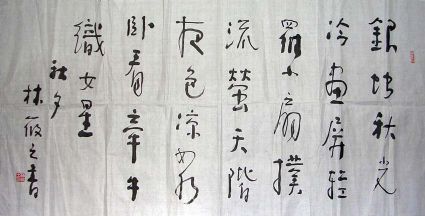 銀烛秋光
冷画屏輕
羅小扇撲
流螢天階
夜色涼如水
卧看牽牛
織女星
秋夕
林筱之書